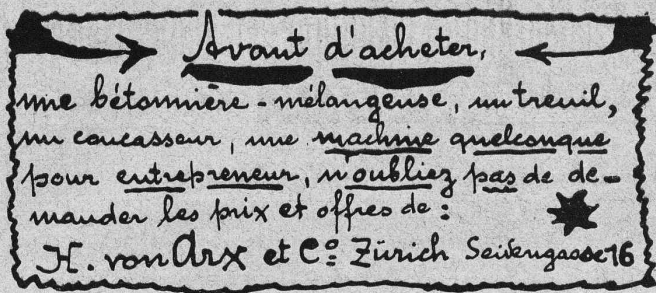 Avant d'acheter,
une bétonnière-mélangeuse, un treuil,
un concasseur, une machine quelconque
pour entrepreneur, n'oubliez pas de de-
mander les prix et offres de:
H. von Arx et Co. Zürich Seidengasse 16